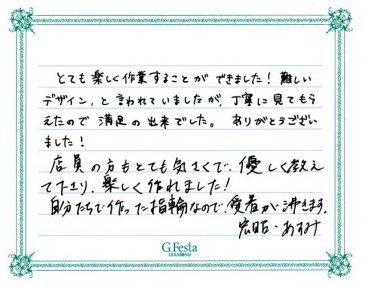 とても楽しく作業することができました！難しい
デザイン、と言われていましたが、丁寧に見てもら
えたので満足の出来でした。ありがとうござい
ました！
店員の方もとても気さくで、優しく教え
て下さり、楽しく作れました！
自分たちで作った指輪なので、愛着が沸きます。
宏昭・あすみ
G.Festa
DIAMOND